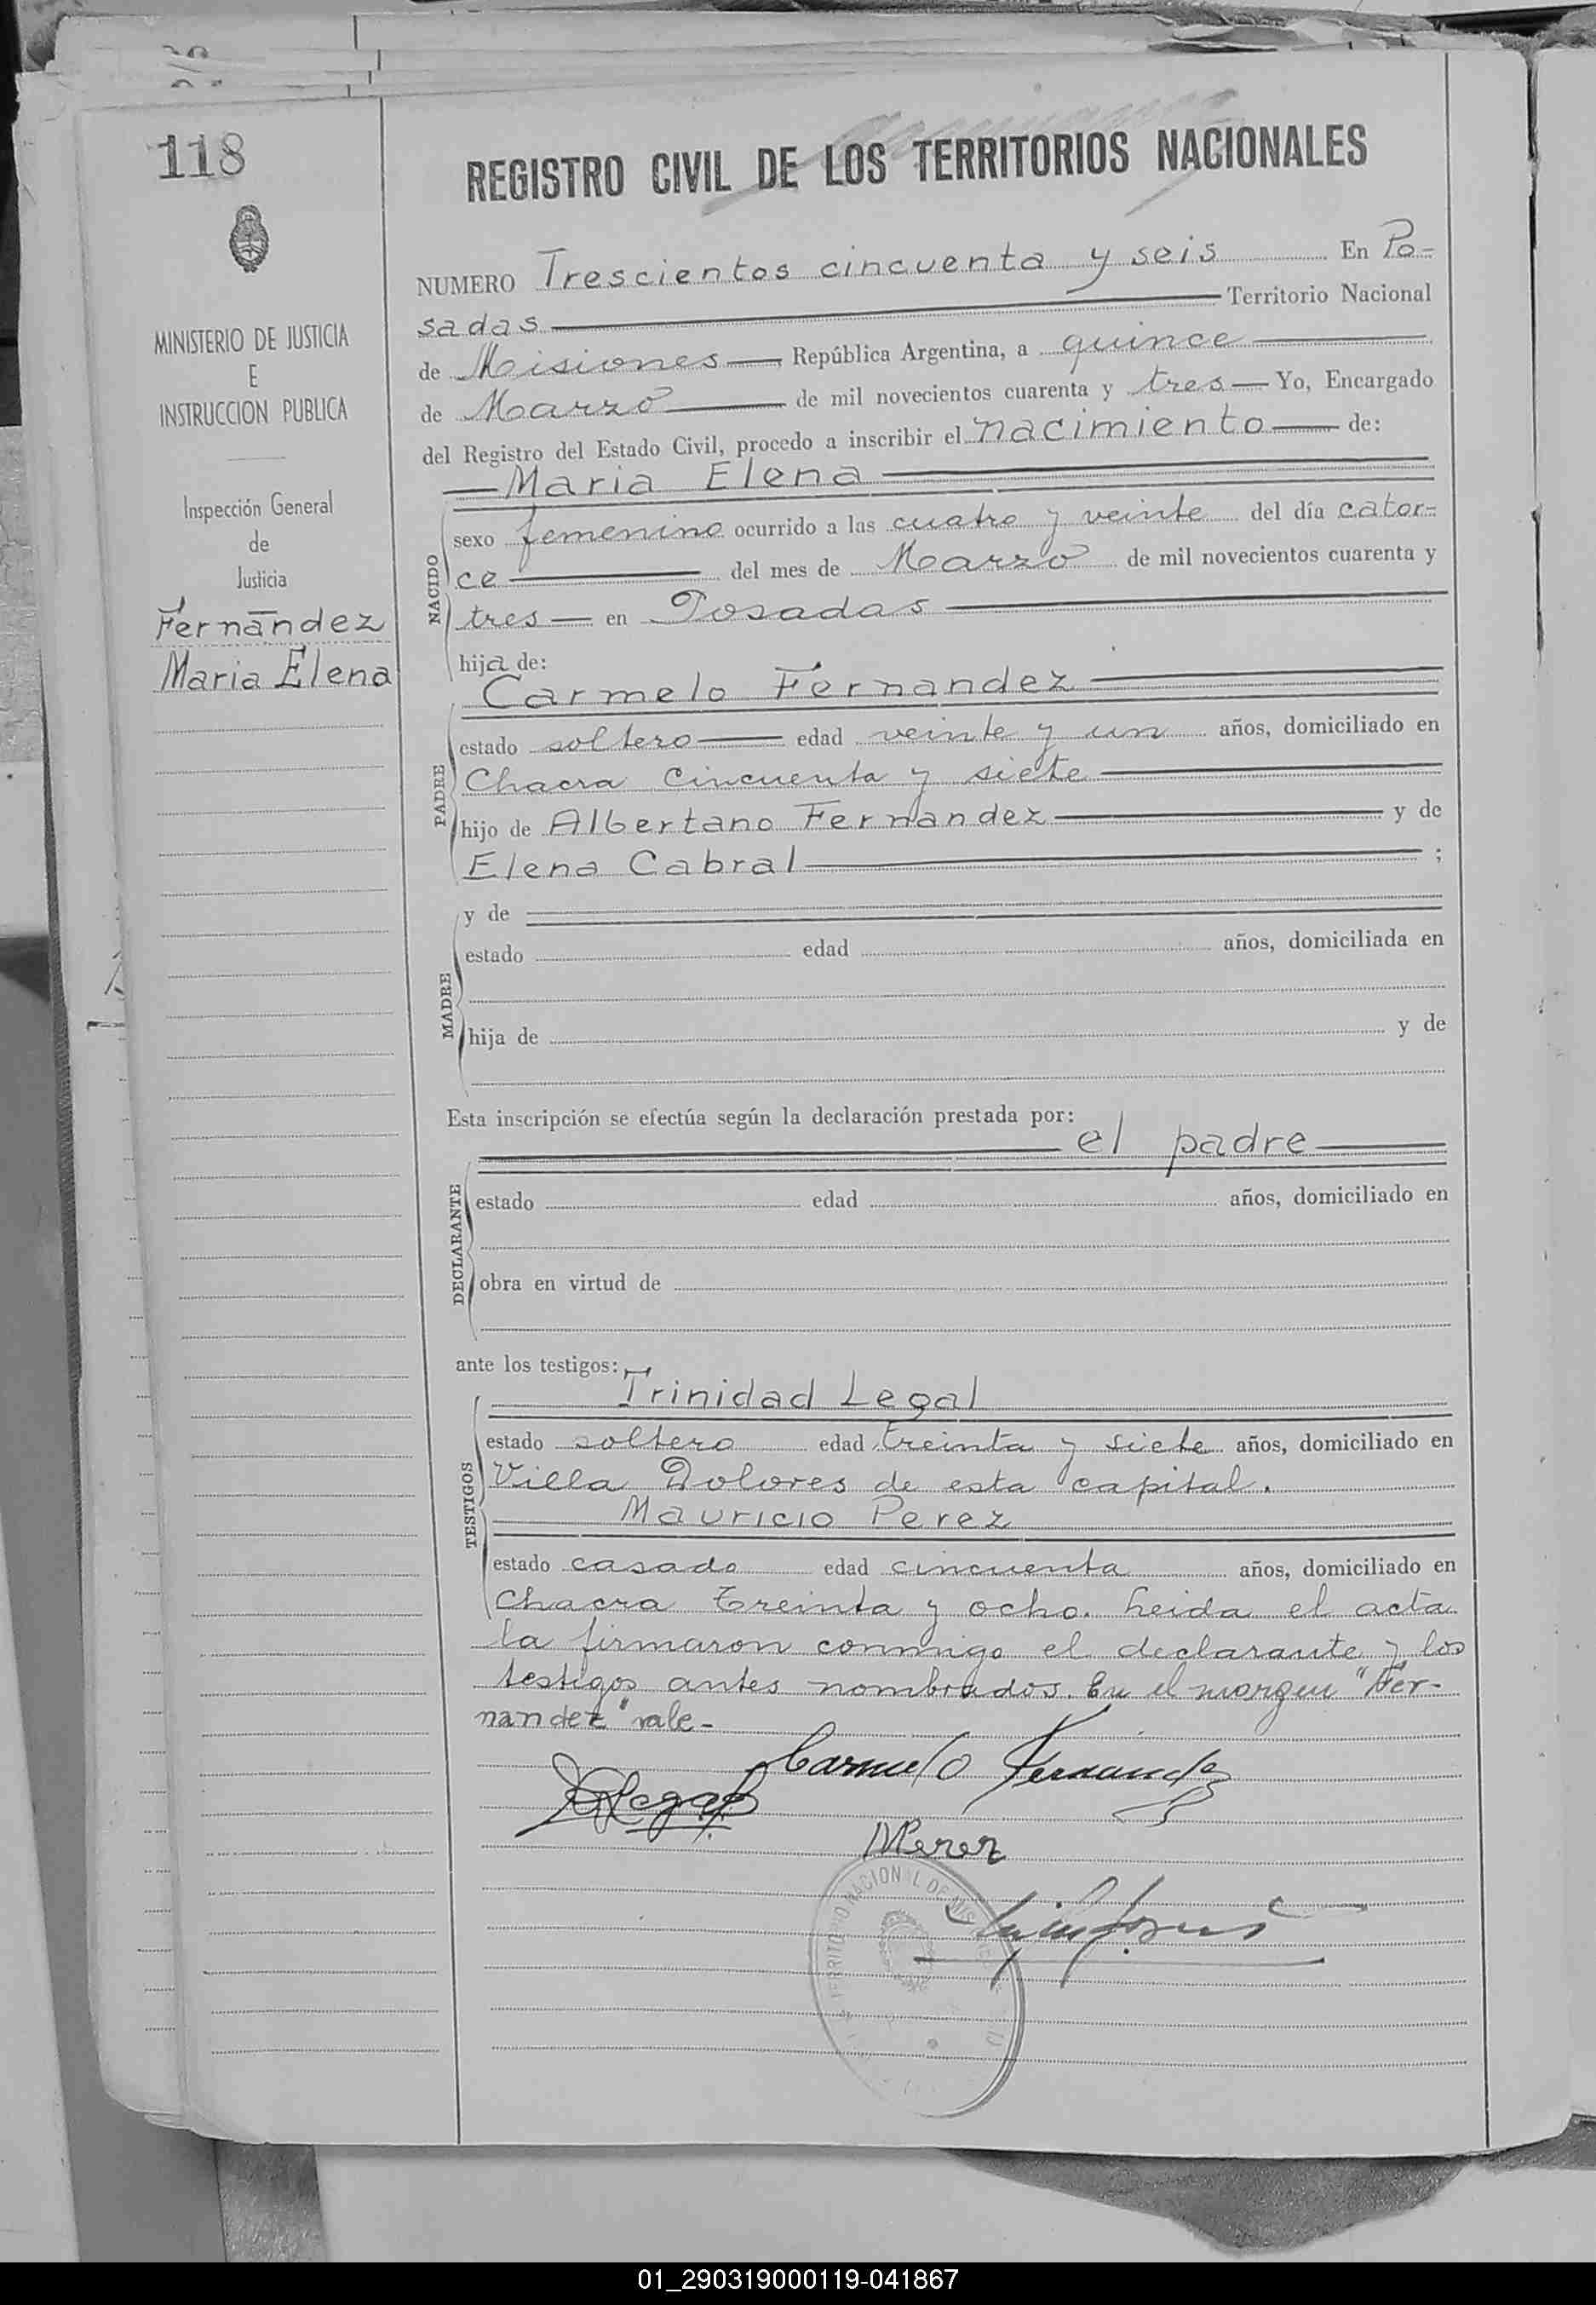 118
REGISTRO CIVIL DE LOS TERRITORIOS NACIONALES
MINISTERIO DE JUSTICIA
E
INSTRUCCION PUBLICA
Inspección General
de
Justicia
Fernandez
Maria Elena
NUMERO Trescientos cincuenta y seis En Po-
sadas Territorio Nacional
de Misiones República Argentina, a quince
de Marzo de mil novecientos cuarenta y tres Yo, Encargado
del Registro del Estado Civil, procedo a inscribir el nacimiento de:
Maria Elena
NACIDO
sexo femenino ocurrido a las cuatro y veinte del día cator-
ce del mes de Marzo de mil novecientos cuarenta y
tres en Posadas
hija de:
Carmelo Fernandez
PADRE
estado soltero edad veinte y un años, domiciliado en
Chacra Cincuenta y siete
hijo de Albertano Fernandez y de
Elena Cabral ;
MADRE
y de
estado edad años, domiciliada en
hija de y de
Esta inscripción se efectúa según la declaración prestada por:
el padre
DECLARANTE
estado edad años, domiciliado en
obra en virtud de
ante los testigos:
Trinidad Legal
TESTIGOS
estado soltero edad treinta y siete años, domiciliado en
Villa Dolores de esta capital.
Mauricio Perez
estado casado edad cincuenta años, domiciliado en
Chacra treinta y ocho. Leida el acta
la firmaron conmigo el declarante y los
testigos antes nombrados. En el margen "Fer-
nandez" vale-
Carmelo Fernandez
Legal
MPerez
TERRITORIO NACIONAL DE MISIONES
01_290319000119-041867